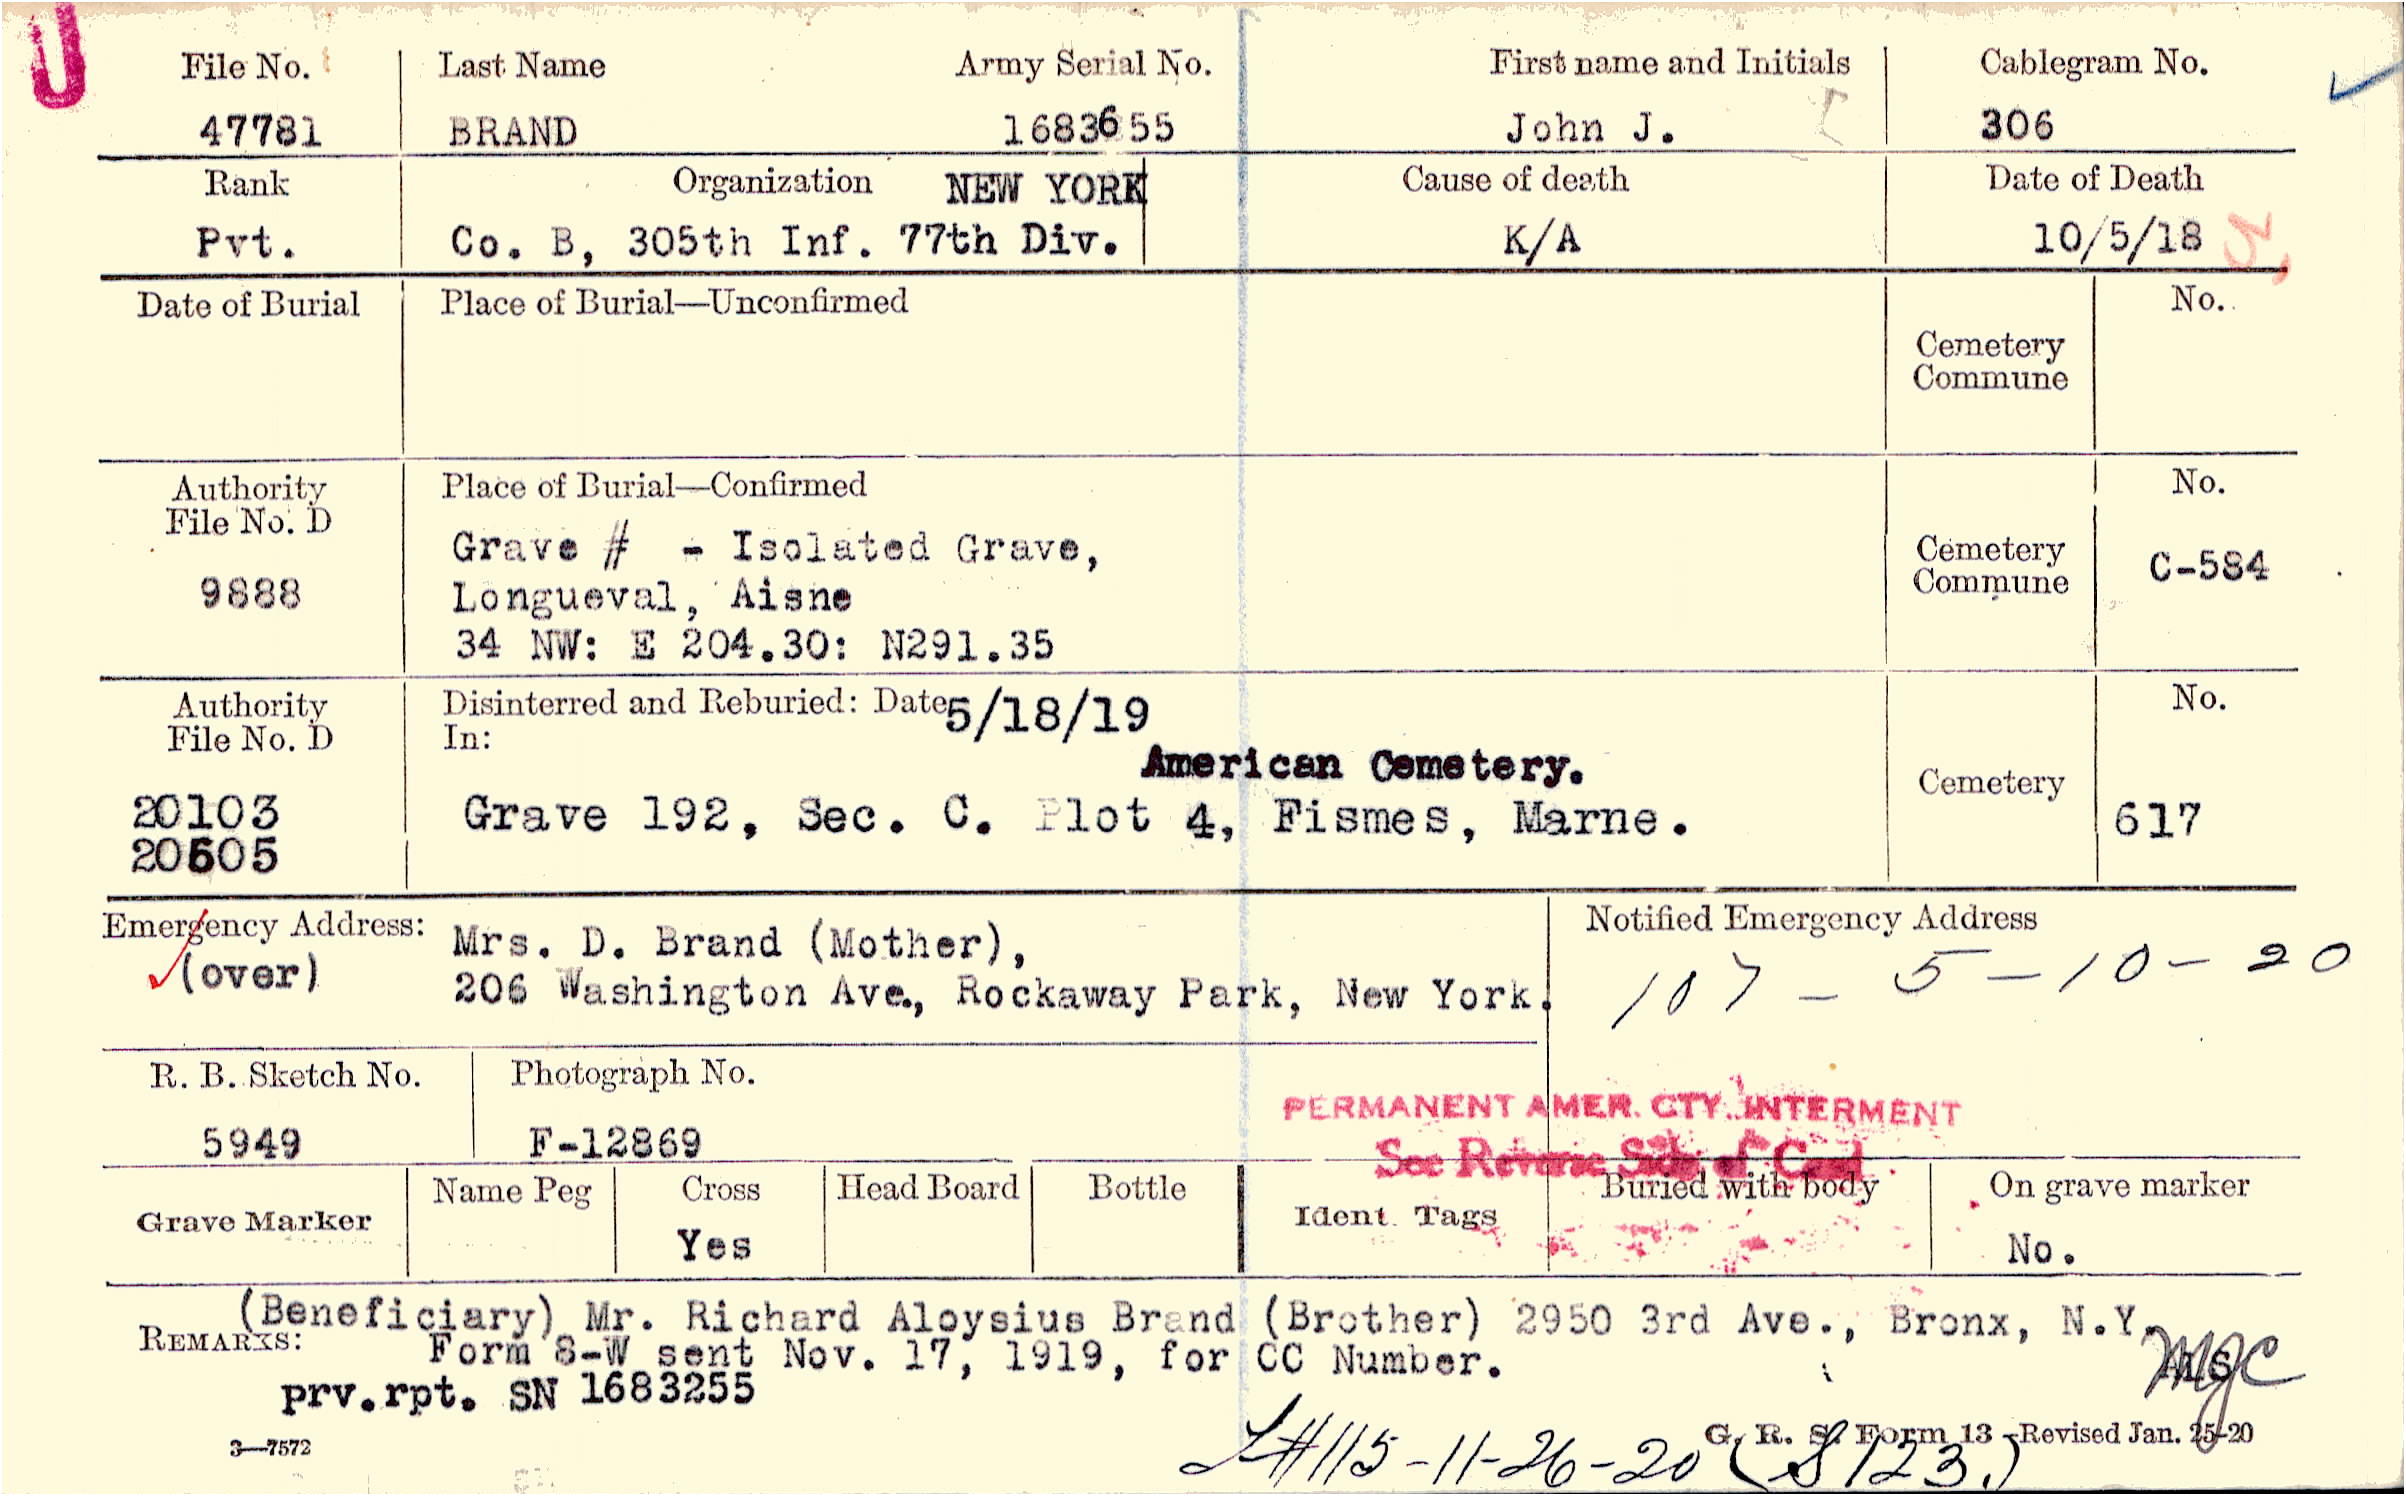 U
File No. Last Name Army Serial No. First name and Initials Cablegram No.
47781 BRAND 1683655 John J. 306
Rank Organization NEW YORK Cause of death Date of Death
Pvt. Co. B, 305th Inf. 77th Div. K/A 10/5/18
Date of Burial Place of Burial—Unconfirmed No.
Cemetery
Commune
Authority Place of Burial—Confirmed No.
File No. D
Grave # - Isolated Grave,
Cemetery
Commune C-584
9888 Longueval, Aisne
34 NW: E 204.30: N291.35
Authority Disinterred and Reburied: Date 5/18/19 No.
File No. D In:
American Cemetery.
Cemetery
20103 Grave 192, Sec. C. Plot 4, Fismes, Marne. 617
20505
Emergency Address: Mrs. D. Brand (Mother), Notified Emergency Address
(over) 206 Washington Ave., Rockaway Park, New York. 107 - 5-10-20
R. B. Sketch No. Photograph No.
5949 F-12869
PERMANENT AMER. CTY. INTERMENT
See Reverse Side of Card
Grave Marker Name Peg Cross Head Board Bottle Ident. Tags Buried with body On grave marker
Yes No.
(Beneficiary) Mr. Richard Aloysius Brand (Brother) 2950 3rd Ave., Bronx, N.Y.
REMARKS: Form 8-W sent Nov. 17, 1919, for CC Number.
prv.rpt. SN 1683255
3—7572 G. R. S. Form 13 -Revised Jan. 25-20
L#115-11-26-20 (S123.)